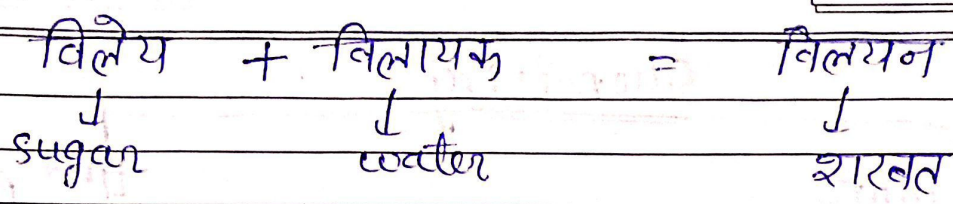 विलेय + विलायक = विलयन
↓ ↓ ↓
sugar water शरबत